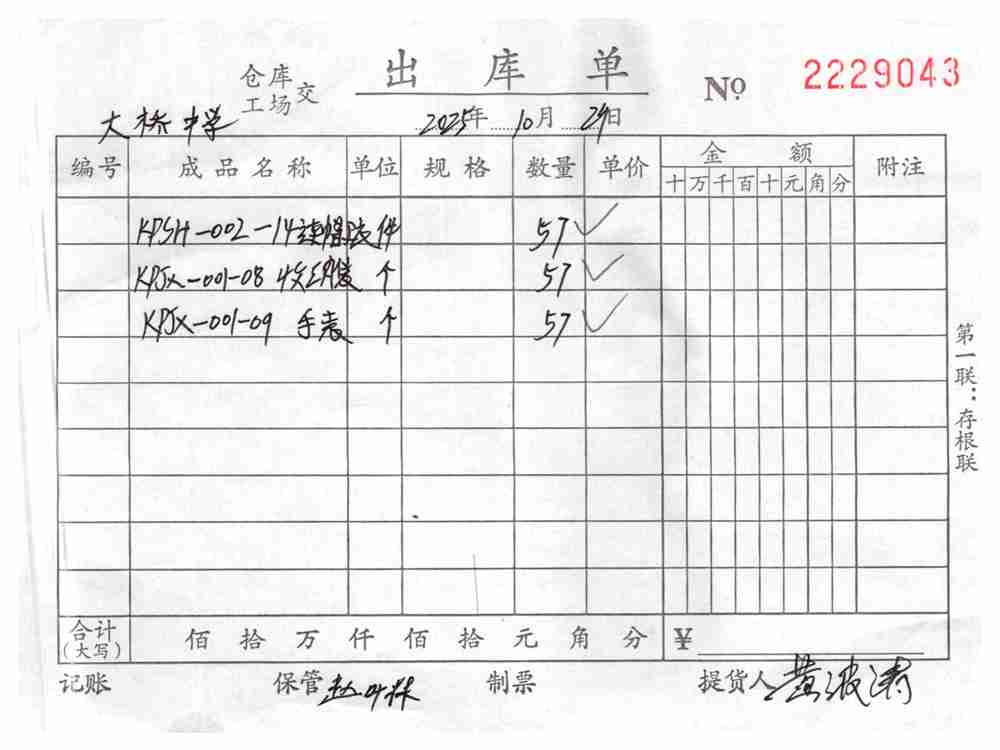 出库单
仓库
工场交
№ 2229043
大桥中学
2025年10月29日
编号 成品名称 单位 规格 数量 单价 金额 附注
十 万 千 百 十 元 角 分
KPSH-002-14连帽 件 57 ✓
KPJX-001-08 收纳袋 个 57 ✓
KPJX-001-09 手表 个 57 ✓
第一联：存根联
合计 佰 拾 万 仟 佰 拾 元 角 分 ¥
(大写)
记账 保管 制票 提货人 黄波涛